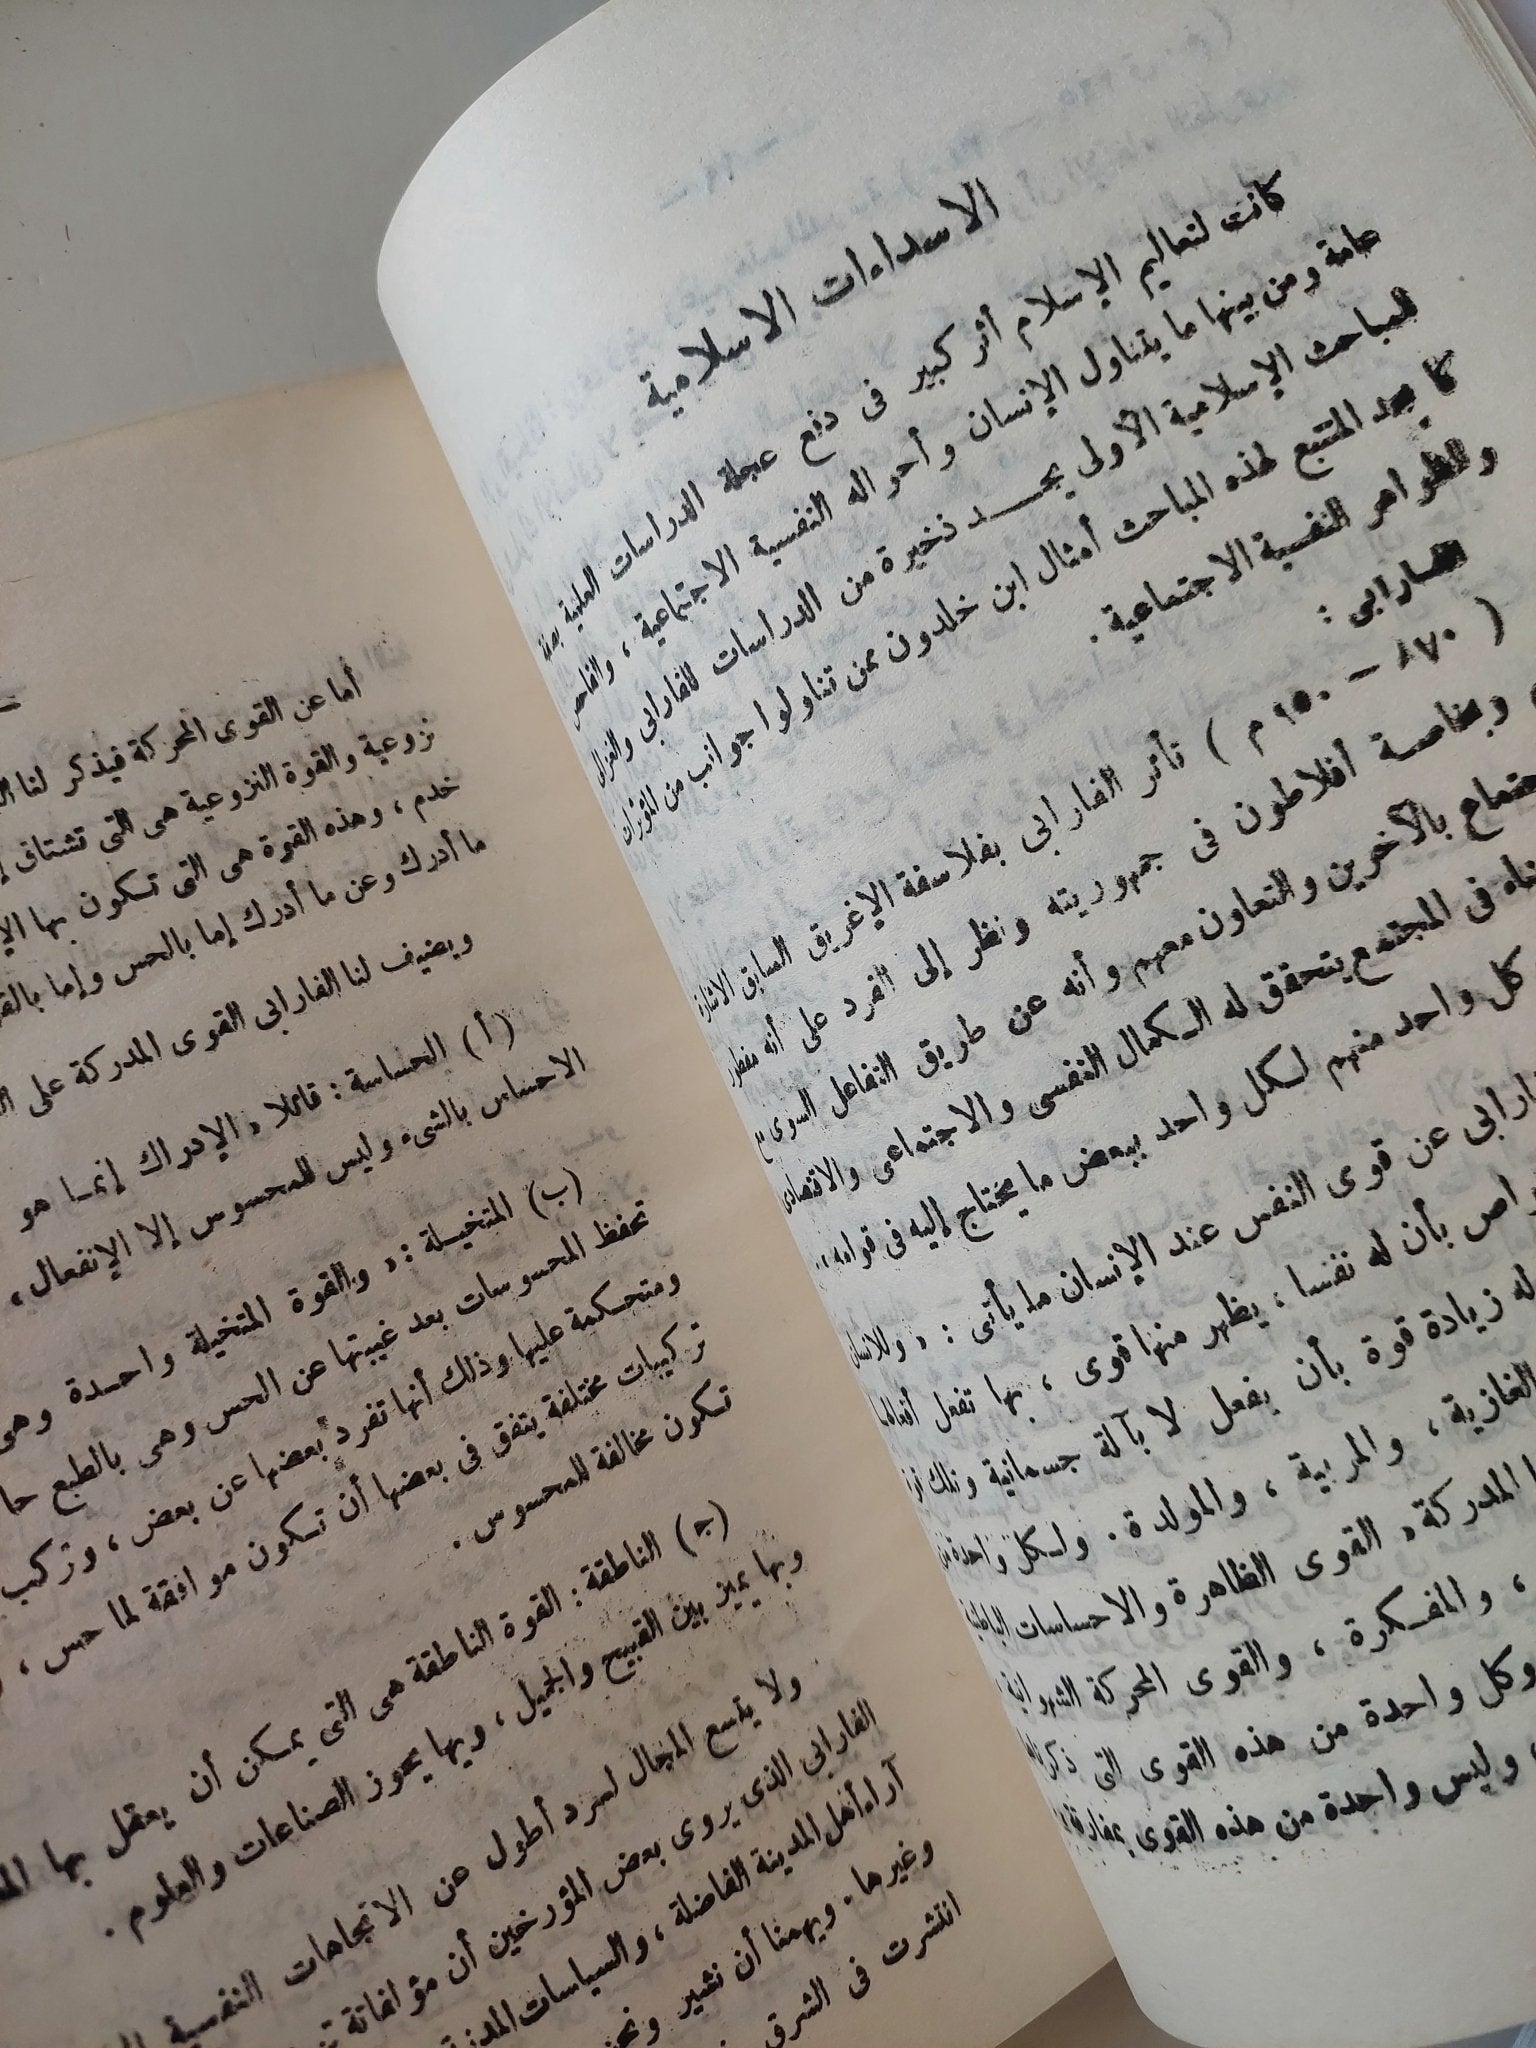 الاسداءات الاسلامية
كانت لتعاليم الإسلام أثر كبير فى دفع عجلة الدراسات العلمية بصفة
عامة ومن بينها ما يتناول الإنسان وأحواله النفسية الاجتماعية ، والفاحص
للمباحث الإسلامية الأولى يجد ذخيرة من الدراسات للفارابى والغزالى
كما يجد المتتبع لهذه المباحث أمثال ابن خلدون ممن تناولوا جوانب من المؤثرات
والظواهر النفسية الاجتماعية .
الفارابى :
( ٨٧٠ – ٩٥٠ م ) تأثر الفارابى بفلاسفة الإغريق السابق الاشارة
وبخاصة أفلاطون فى جمهوريته ونظر إلى الفرد على أنه مفطور
بالآخرين والتعاون معهم وأنه عن طريق التفاعل السوى مع
فى المجتمع يتحقق له الكمال النفسى والاجتماعى والاقتصادى
كل واحد منهم لكل واحد ببعض ما يحتاج إليه فى قوامه »
عن قوى النفس عند الإنسان ما يأتى : « وللانسان
بأن له نفسا ، يظهر منها قوى ، بها تفعل أفعالها
له زيادة قوة بأن يفعل لا بآلة جسمانية وتلك
الغازية ، والمربية ، والمولدة . ولكل واحدة من
المدركة « القوى الظاهرة والاحساسات الباطنة
، والمفكرة ، والقوى المحركة الشهوانية
وكل واحدة من هذه القوى التى
، وليس واحدة من هذه القوى بمفارقة
أما عن القوى المحركة فيذكر لنا
نزوعية والقوة النزوعية هى التى تشتاق
خدم ، وهذه القوة هى التى تكون بها
ما أدرك وعن ما أدرك إما بالحس وإما
ويضيف لنا الفارابى القوى المدركة على
(أ) الحساسة : قائلا « الإدراك إنما هو
الاحساس بالشىء وليس للمحسوس إلا الإنفعال ،
(ب) المتخيلة : « والقوة المتخيلة واحدة وهى
تحفظ المحسوسات بعد غيبتها عن الحس وهى بالطبع
ومتحكمة عليها وذلك أنها تفرد بعضها عن بعض ، وتركب
تركيبات مختلفة يتفق فى بعضها أن تكون موافقة لما حس ،
تكون مخالفة للمحسوس .
(ج) الناطقة : القوة الناطقة هى التى يمكن أن يعقل بها
وبها يميز بين القبيح والجميل ، وبها يحوز الصناعات والعلوم .
ولا يتسع المجال لسرد أطول عن الاتجاهات النفسية
الفارابى الذى يروى بعض المؤرخين أن مؤلفاتة
آراء أهل المدينة الفاضلة ، والسياسات المدنية
وغيرها . ويهمنا أن نشير
انتشرت فى الشرق